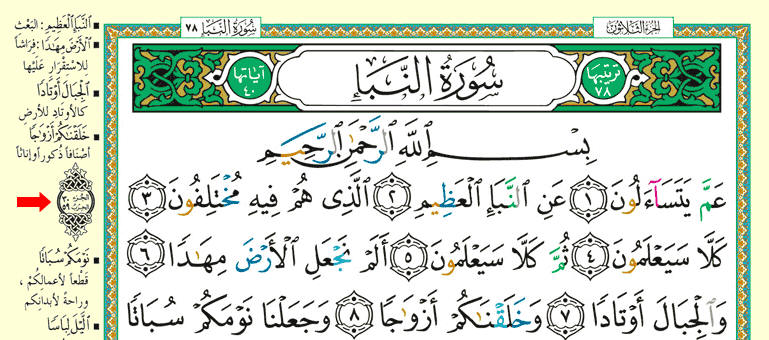 سُورَةُ النَّبَإِ ٧٨
الجُزءُ الثَّلَاثُونَ
تَرتِيبُهَا ٧٨
سُورَةُ النَّبَإِ
آيَاتُهَا ٤٠
بِسْمِ اللَّهِ الرَّحْمَٰنِ الرَّحِيمِ
عَمَّ يَتَسَآءَلُونَ ١ عَنِ النَّبَإِ الْعَظِيمِ ٢ الَّذِى هُمْ فِيهِ مُخْتَلِفُونَ ٣
كَلَّا سَيَعْلَمُونَ ٤ ثُمَّ كَلَّا سَيَعْلَمُونَ ٥ أَلَمْ نَجْعَلِ الْأَرْضَ مِهَٰدًا ٦
وَالْجِبَالَ أَوْتَادًا ٧ وَخَلَقْنَٰكُمْ أَزْوَٰجًا ٨ وَجَعَلْنَا نَوْمَكُمْ سُبَاتًا
▪ النَّبَإِ الْعَظِيمِ: البَعْث
▪ الْأَرْضَ مِهَٰدًا: فِرَاشًا
للاسْتِقْرَارِ عَلَيْهَا
▪ الْجِبَالَ أَوْتَادًا
كالأوتادِ للأرض
▪ خَلَقْنَاكُمْ أَزْوَاجًا
أصْنَافاً ذُكُوراً وإناثاً
▪ نَوْمَكُمْ سُبَاتًا
قَطْعاً لأعمالِكُمْ،
وراحةً لأبدانِكم
▪ الَّيْلَ لِبَاسًا